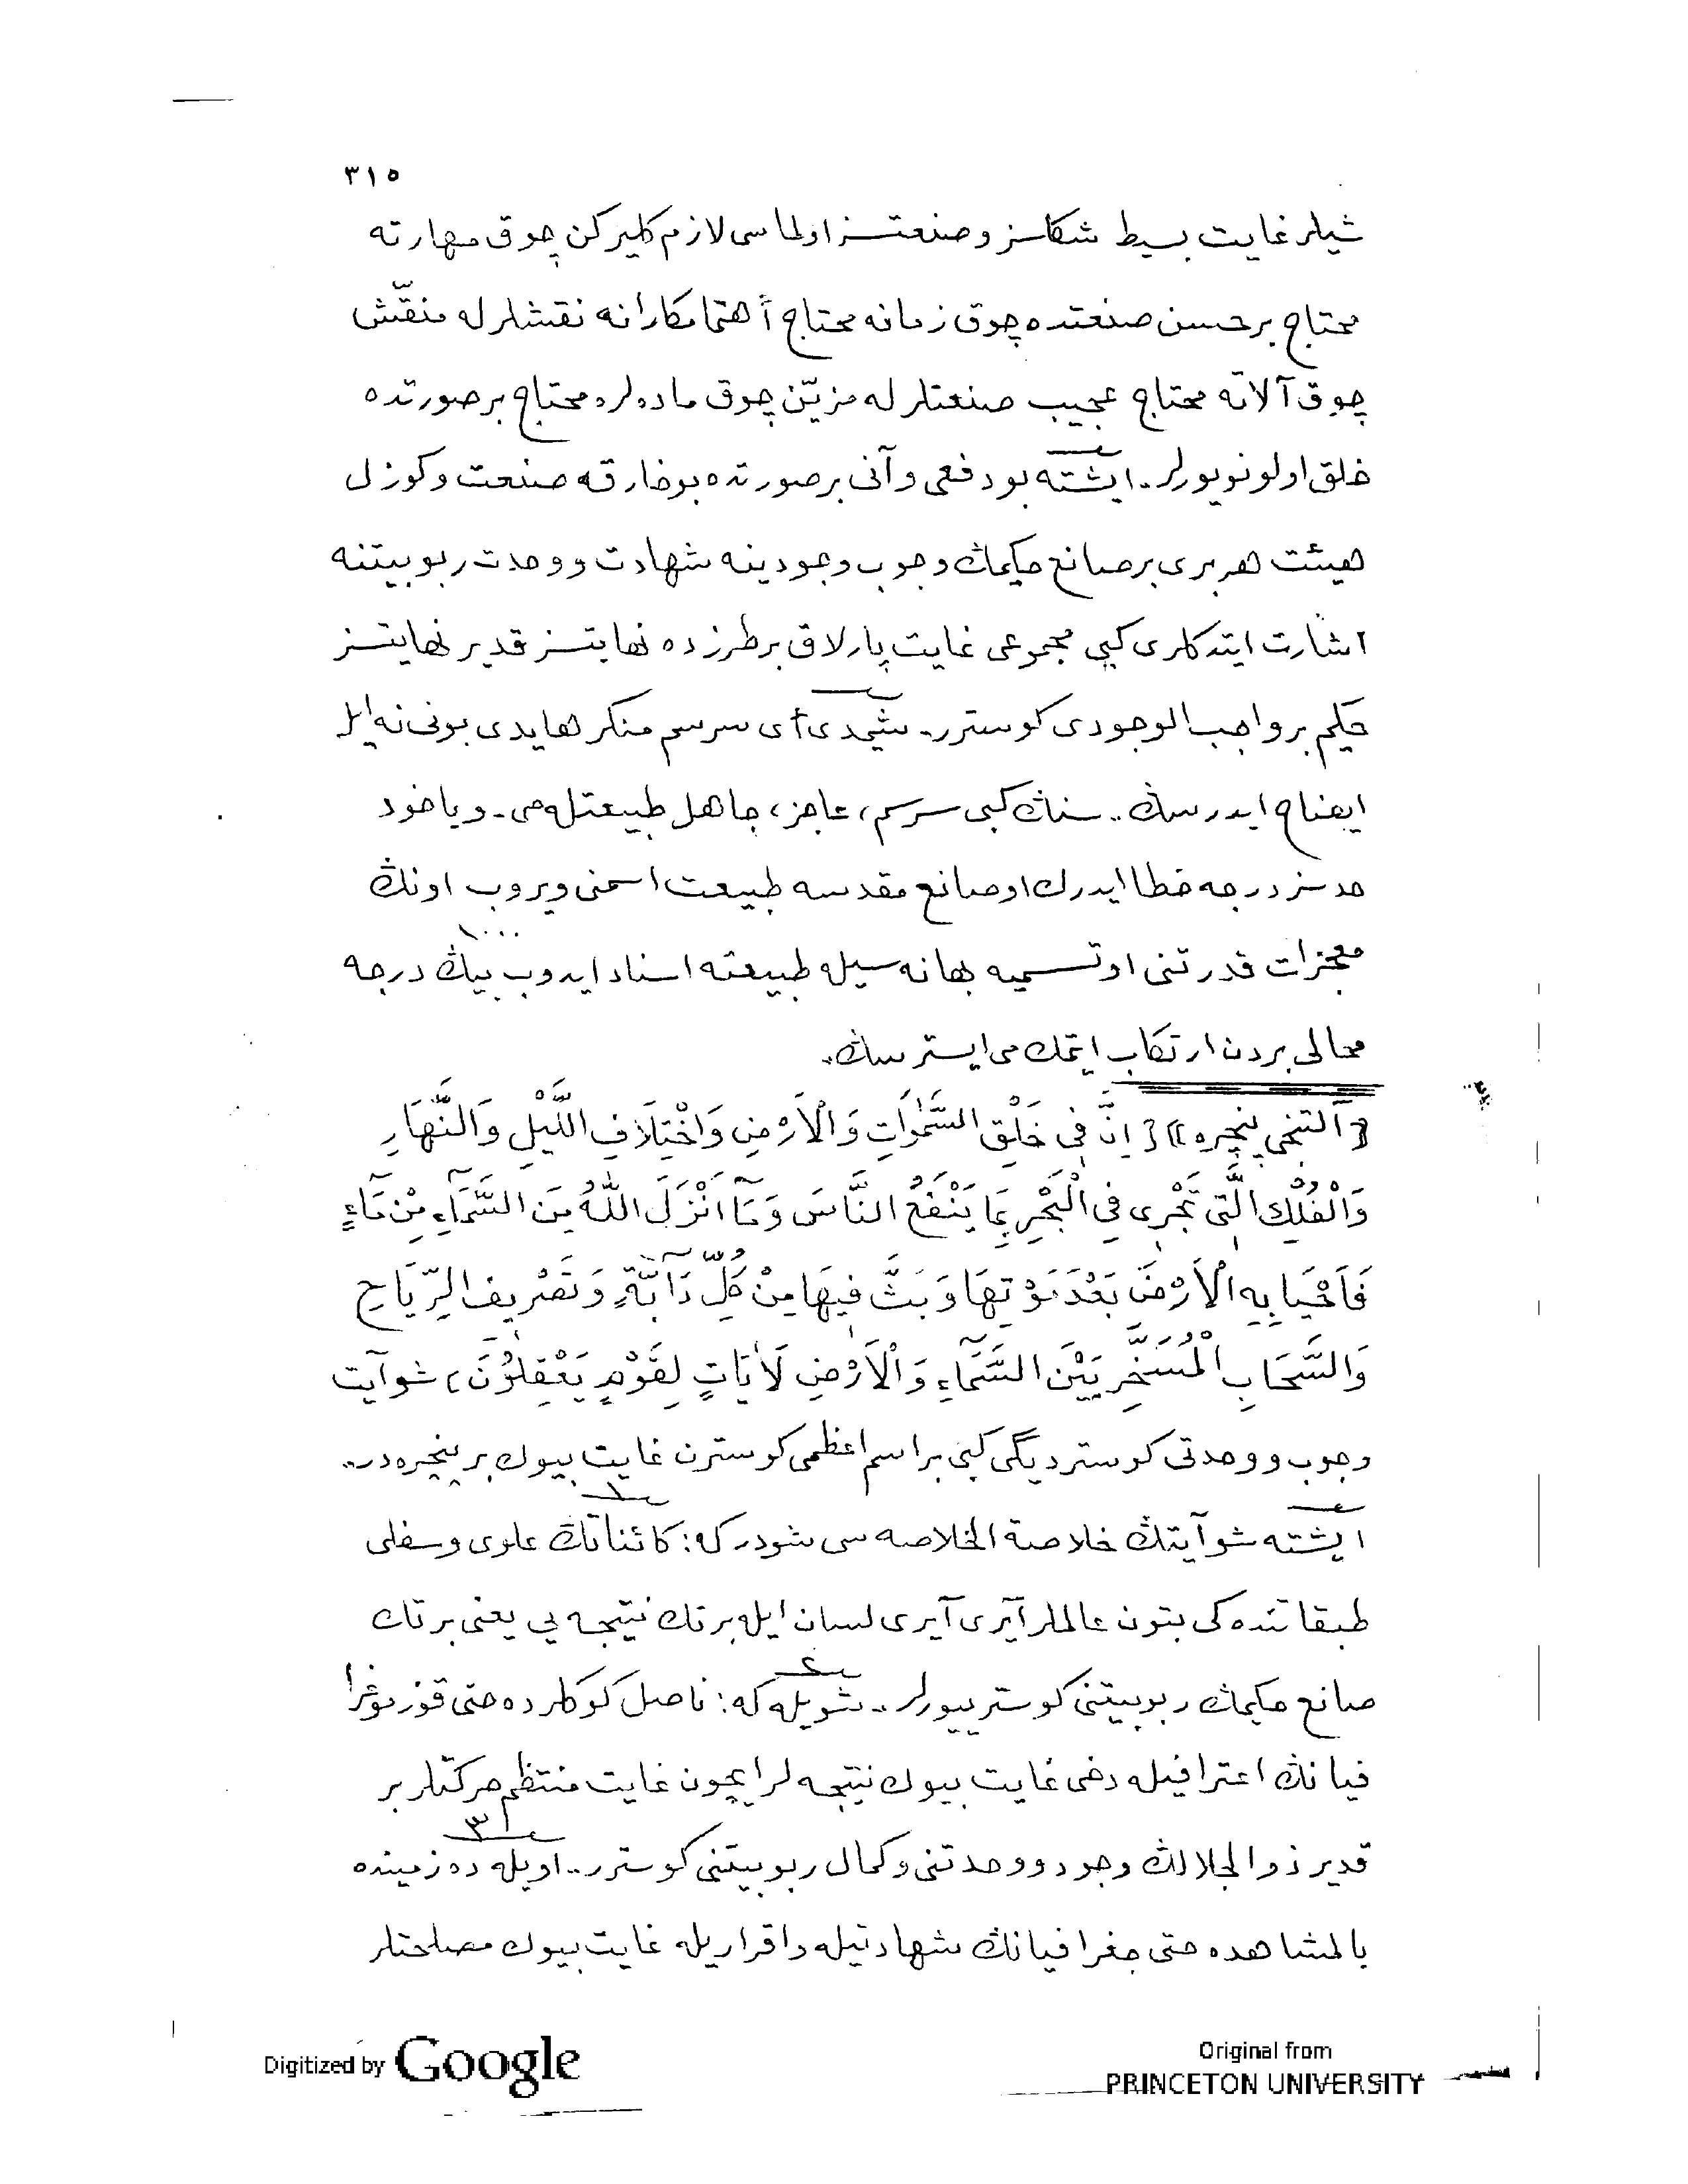 ٣١٥
شيلر غايت بسيط شكلسز و صنعتسز اولماسى لازم كليركن چوق مهارته
محتاج بر حسن صنعتده چوق زمانه محتاج أهتمامكارانه نقشلرله منقّش
چوق آلاته محتاج عجيب صنعتلرله مزيّن چوق ماده لره محتاج بر صورتده
خلق اولونويورلر. ايشته بو دفعى و آنى بر صورتده بو خارقه صنعت و كوزل
هيئت هر برى بر صانع حكيمڭ وجوب وجودينه شهادت و وحدت ربوبيتنه
اشارت ايتدكلرى كبى مجموعى غايت پارلاق بر طرزده نهايتسز قدير نهايتسز
حكيم بر واجب الوجودى كوسترر. شيمدى أى سرسم منكر هايدى بونى نه ايله
ايضاح ايدرسڭ.. سنڭ كبى سرسم، عاجز، جاهل طبيعتله مى. و ياخود
حدسز درجه خطا ايدرك او صانع مقدسه طبيعت اسمنى ويروب اونڭ
معجزات قدرتنى او تسميه بهانه سيله طبيعته اسناد ايدوب بيڭ درجه
١٠٠٠
محالى بردن ارتكاب ايتمك مى ايسترسڭ.
﴿آلتنجى پنجره﴾ ﴿ اِنَّ فِى خَلْقِ السَّمٰوَاتِ وَالْاَرْضِ وَاخْتِلَافِ اللَّيْلِ وَالنَّهَارِ
وَالْفُلْكِ الَّتِى تَجْرِى فِى الْبَحْرِ بِمَا يَنْفَعُ النَّاسَ وَمَآ اَنْزَلَ اللّٰهُ مِنَ السَّمَآءِ مِنْ مَآءٍ
فَاَحْيَا بِهِ الْاَرْضَ بَعْدَ مَوْتِهَا وَبَثَّ فِيهَا مِنْ كُلِّ دَآبَّةٍ وَتَصْرِيفِ الرِّيَاحِ
وَالسَّحَابِ الْمُسَخَّرِ بَيْنَ السَّمَآءِ وَالْاَرْضِ لَاٰيَاتٍ لِقَوْمٍ يَعْقِلُونَ ﴾ شو آيت
وجوب و وحدتى كوسترديگى كبى بر اسم اعظمى كوسترن غايت بيوك بر پنجره در..
ايشته شو آيتڭ خلاصة الخلاصه سى شودر كه: كائناتڭ علوى و سفلى
١
طبقاتنده كى بتون عالملر آيرى آيرى لسان ايله بر تك نتيجه يى يعنى بر تك
صانع حكيمڭ ربوبيتنى كوسترييورلر.. شويله كه: ناصل كوكلرده حتى قوزموغرا
٢
فيانڭ اعترافيله دخى غايت بيوك نتيجه لر ايچون غايت منتظم حركتلر بر
قدير ذو الجلالڭ وجود و وحدتنى و كمال ربوبيتنى كوسترر.. اويله ده زمينده
٣
بالمشاهده حتى جغرافيانڭ شهادتيله و اقراريله غايت بيوك مصلحتلر
Digitized by Google
Original from
PRINCETON UNIVERSITY